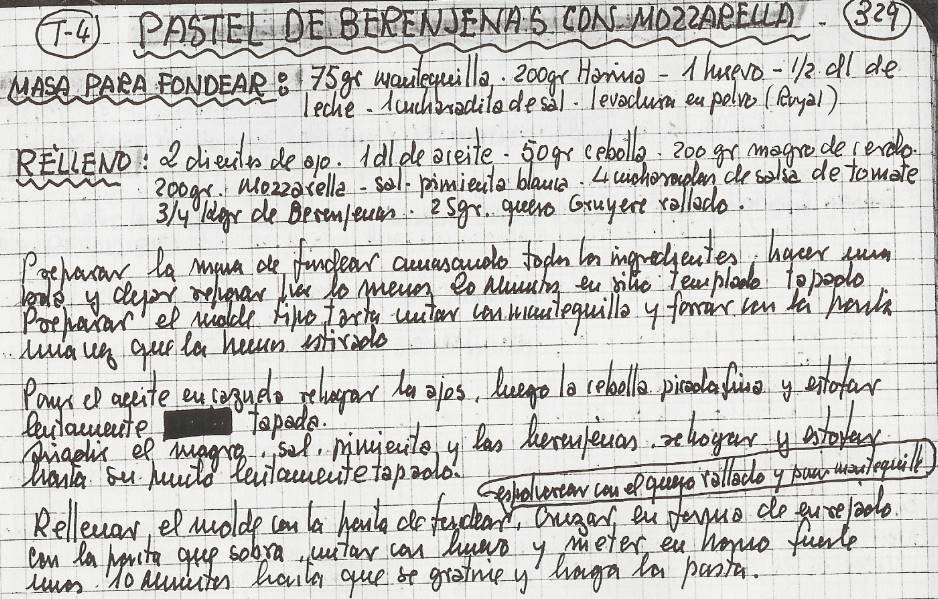 T-4 PASTEL DE BERENJENAS CON MOZZARELLA - 329
MASA PARA FONDEAR: 75gr mantequilla - 200gr Harina - 1 huevo - 1/2 dl de
leche - 1 cucharadita de sal - levadura en polvo (Royal)
RELLENO: 2 dientes de ajo. 1 dl de aceite - 50gr cebolla. 200 gr magro de cerdo.
200gr. Mozzarella - sal - pimienta blanca. 4 cucharadas de salsa de tomate
3/4 kgr de Berenjenas. 25gr. queso Gruyere rallado.
Preparar la masa de fondear amasando todos los ingredientes, hacer una
bola y dejar reposar por lo menos 20 minutos en sitio templado tapado
Preparar el molde tipo tarta untar con mantequilla y forrar con la pasta
una vez que la hemos estirado
Poner el aceite en cazuela rehogar los ajos, luego la cebolla picada fina y estofar
lentamente tapada.
Añadir el magro, sal, pimienta y las berenjenas, rehogar y estofar
hasta su punto lentamente tapado.
espolvorear con el queso rallado y poner mantequilla
Rellenar el molde con la pasta de fondear, Cruzar en forma de enrejado
con la pasta que sobra, untar con huevo y meter en horno fuerte
unos 10 minutos hasta que se gratine y haga la pasta.